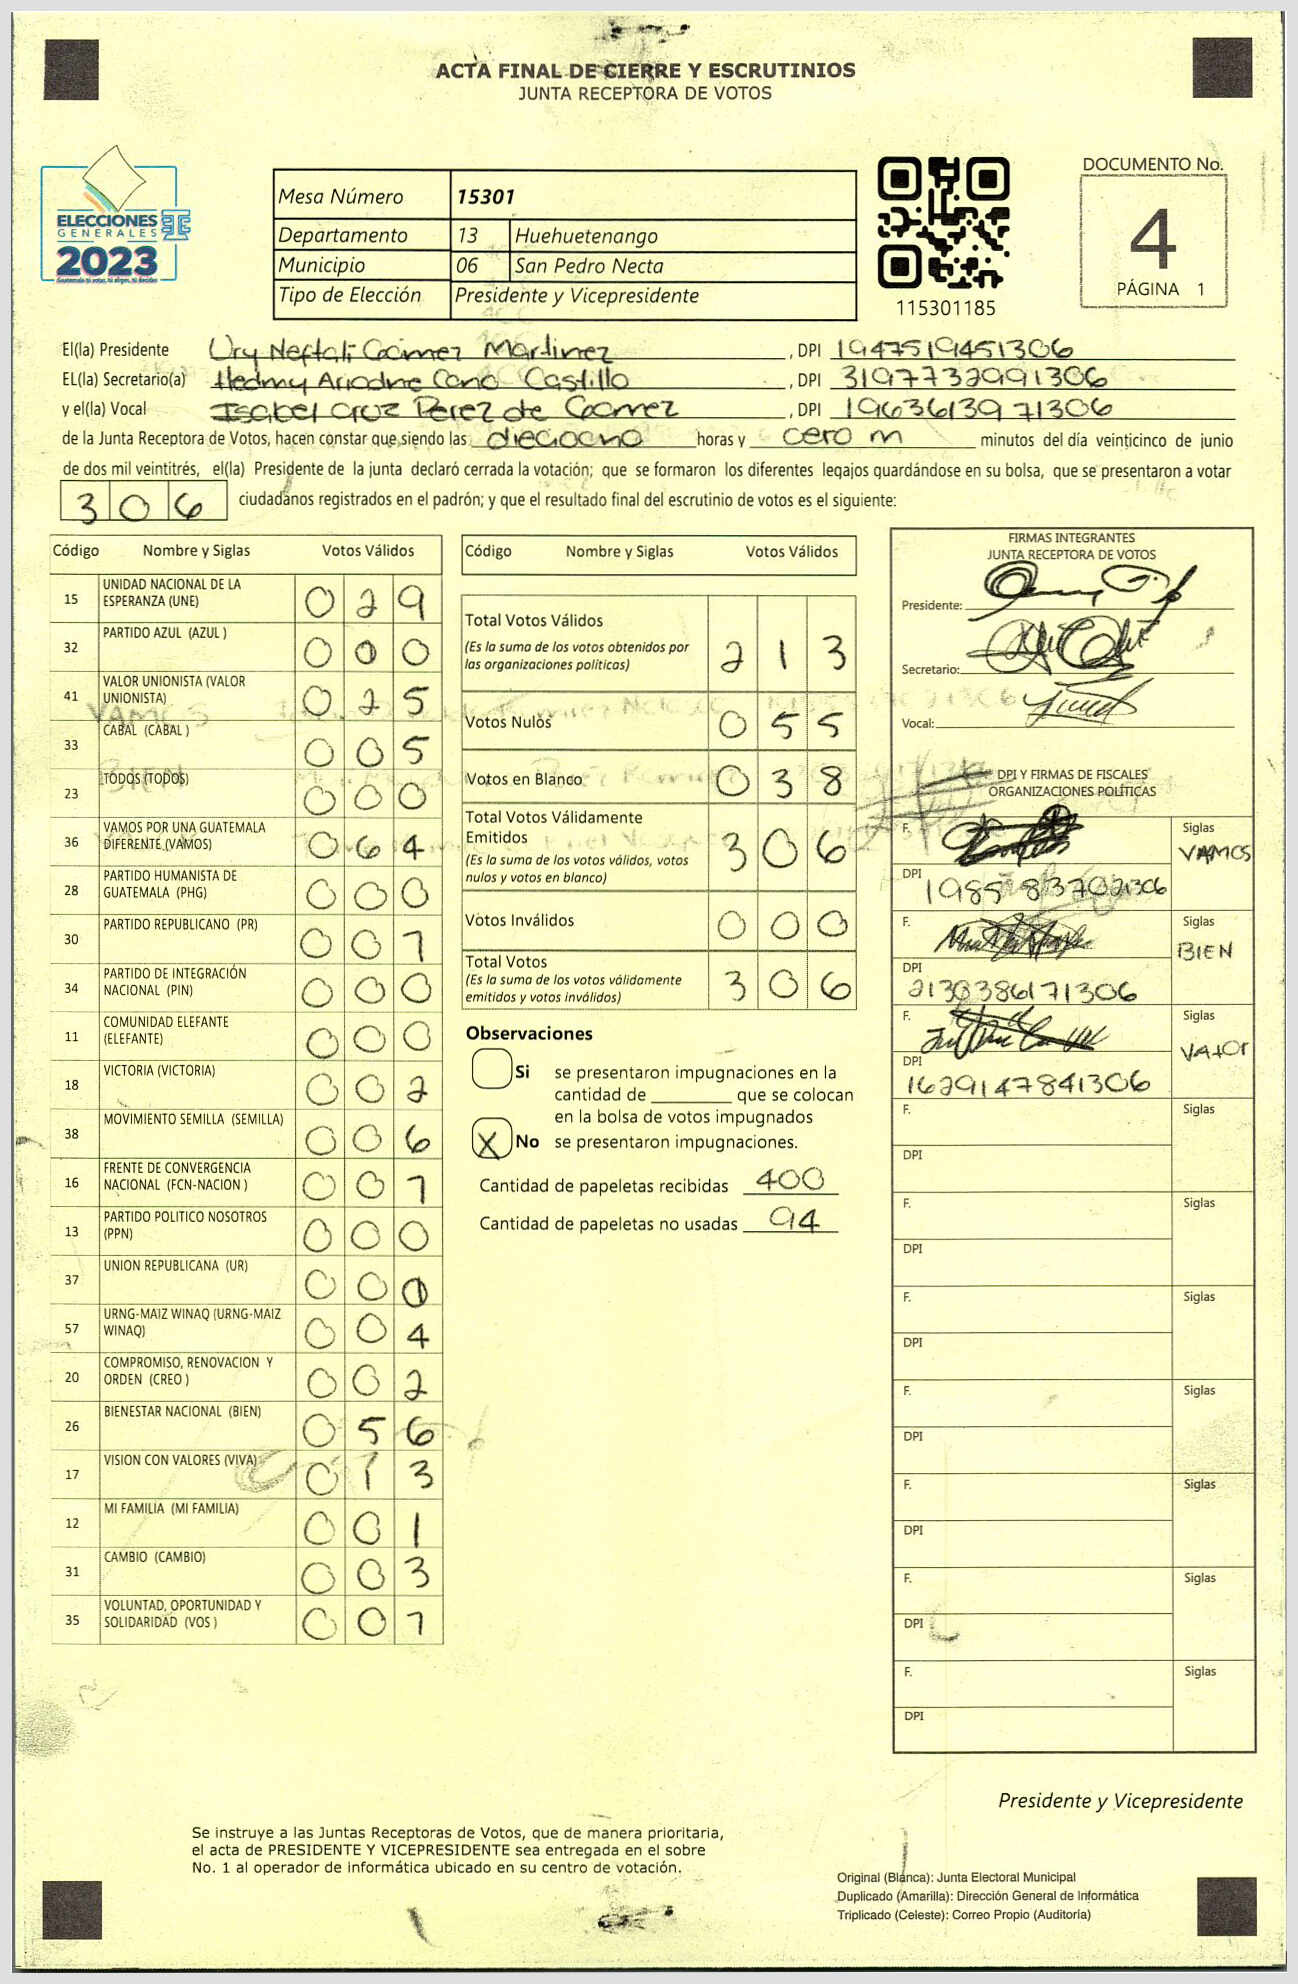 ACTA FINAL DE CIERRE Y ESCRUTINIOS
JUNTA RECEPTORA DE VOTOS
ELECCIONES
GENERALES
2023
Mesa Número 15301
Departamento 13 Huehuetenango
Municipio 06 San Pedro Necta
Tipo de Elección Presidente y Vicepresidente
115301185
DOCUMENTO No.
4
PÁGINA 1
El(la) Presidente Ury Neftali Gómez Martinez, DPI 1947519451306
EL(la) Secretario(a) Hedmy Ariadne Cano Castillo, DPI 3197732991306
y el(la) Vocal Isabel Cruz Perez de Gómez, DPI 1963613971306
de la Junta Receptora de Votos, hacen constar que siendo las dieciocho horas y cero m minutos del día veinticinco de junio
de dos mil veintitrés, el(la) Presidente de la junta declaró cerrada la votación; que se formaron los diferentes legajos guardándose en su bolsa, que se presentaron a votar
306 ciudadanos registrados en el padrón; y que el resultado final del escrutinio de votos es el siguiente:
Código Nombre y Siglas Votos Válidos
15 UNIDAD NACIONAL DE LA ESPERANZA (UNE) 0 2 9
32 PARTIDO AZUL (AZUL ) 0 0 0
41 VALOR UNIONISTA (VALOR UNIONISTA) 0 2 5
33 CABAL (CABAL ) 0 0 5
23 TODOS (TODOS) 0 0 0
36 VAMOS POR UNA GUATEMALA DIFERENTE (VAMOS) 0 6 4
28 PARTIDO HUMANISTA DE GUATEMALA (PHG) 0 0 0
30 PARTIDO REPUBLICANO (PR) 0 0 7
34 PARTIDO DE INTEGRACIÓN NACIONAL (PIN) 0 0 0
11 COMUNIDAD ELEFANTE (ELEFANTE) 0 0 0
18 VICTORIA (VICTORIA) 0 0 2
38 MOVIMIENTO SEMILLA (SEMILLA) 0 0 6
16 FRENTE DE CONVERGENCIA NACIONAL (FCN-NACION ) 0 0 7
13 PARTIDO POLITICO NOSOTROS (PPN) 0 0 0
37 UNION REPUBLICANA (UR) 0 0
57 URNG-MAIZ WINAQ (URNG-MAIZ WINAQ) 0 0 4
20 COMPROMISO, RENOVACION Y ORDEN (CREO ) 0 0 2
26 BIENESTAR NACIONAL (BIEN) 0 5 6
17 VISION CON VALORES (VIVA) 0 1 3
12 MI FAMILIA (MI FAMILIA) 0 0 1
31 CAMBIO (CAMBIO) 0 0 3
35 VOLUNTAD, OPORTUNIDAD Y SOLIDARIDAD (VOS ) 0 0 7
Código Nombre y Siglas Votos Válidos
Total Votos Válidos 2 1 3
(Es la suma de los votos obtenidos por
las organizaciones políticas)
Votos Nulos 0 5 5
Votos en Blanco 0 3 8
Total Votos Válidamente
Emitidos 3 0 6
(Es la suma de los votos válidos, votos
nulos y votos en blanco)
Votos Inválidos 0 0 0
Total Votos 3 0 6
(Es la suma de los votos válidamente
emitidos y votos inválidos)
Observaciones
Si se presentaron impugnaciones en la
cantidad de ________ que se colocan
en la bolsa de votos impugnados
X No se presentaron impugnaciones.
Cantidad de papeletas recibidas 400
Cantidad de papeletas no usadas 94
FIRMAS INTEGRANTES
JUNTA RECEPTORA DE VOTOS
Presidente:
Secretario:
Vocal:
DPI Y FIRMAS DE FISCALES
ORGANIZACIONES POLÍTICAS
F. Siglas VAMOS
DPI 1985 83702 1306
F. Siglas BIEN
DPI 2130386171306
F. Siglas VALOr
DPI 1629147841306
F. Siglas
DPI
F. Siglas
DPI
F. Siglas
DPI
F. Siglas
DPI
F. Siglas
DPI
F. Siglas
DPI
F. Siglas
DPI
Presidente y Vicepresidente
Se instruye a las Juntas Receptoras de Votos, que de manera prioritaria,
el acta de PRESIDENTE Y VICEPRESIDENTE sea entregada en el sobre
No. 1 al operador de informática ubicado en su centro de votación.
Original (Blanca): Junta Electoral Municipal
Duplicado (Amarilla): Dirección General de Informática
Triplicado (Celeste): Correo Propio (Auditoría)